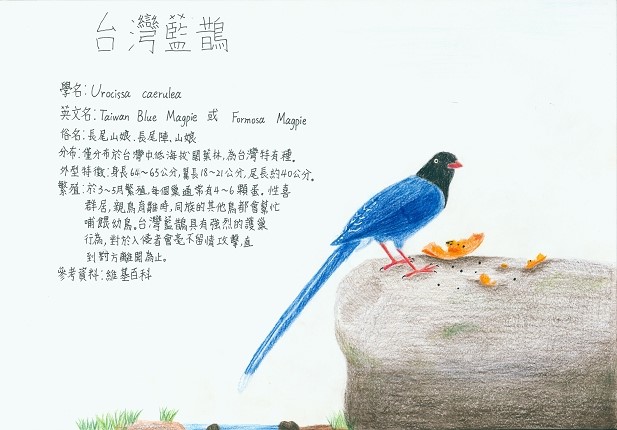 台灣藍鵲
學名：Urocissa caerulea
英文名：Taiwan Blue Magpie 或 Formosa Magpie
俗名：長尾山娘、長尾陣、山娘
分布：僅分布於台灣中低海拔闊葉林，為台灣特有種。
外型特徵：身長64~65公分，翼長18~21公分，尾長約40公分。
繁殖：於3~5月繁殖，每個巢通常有4~6顆蛋。性喜
群居，親鳥育雛時，同族的其他鳥都會幫忙
哺餵幼鳥。台灣藍鵲具有強烈的護巢
行為，對於入侵者會毫不留情攻擊，直
到對方離開為止。
參考資料：維基百科